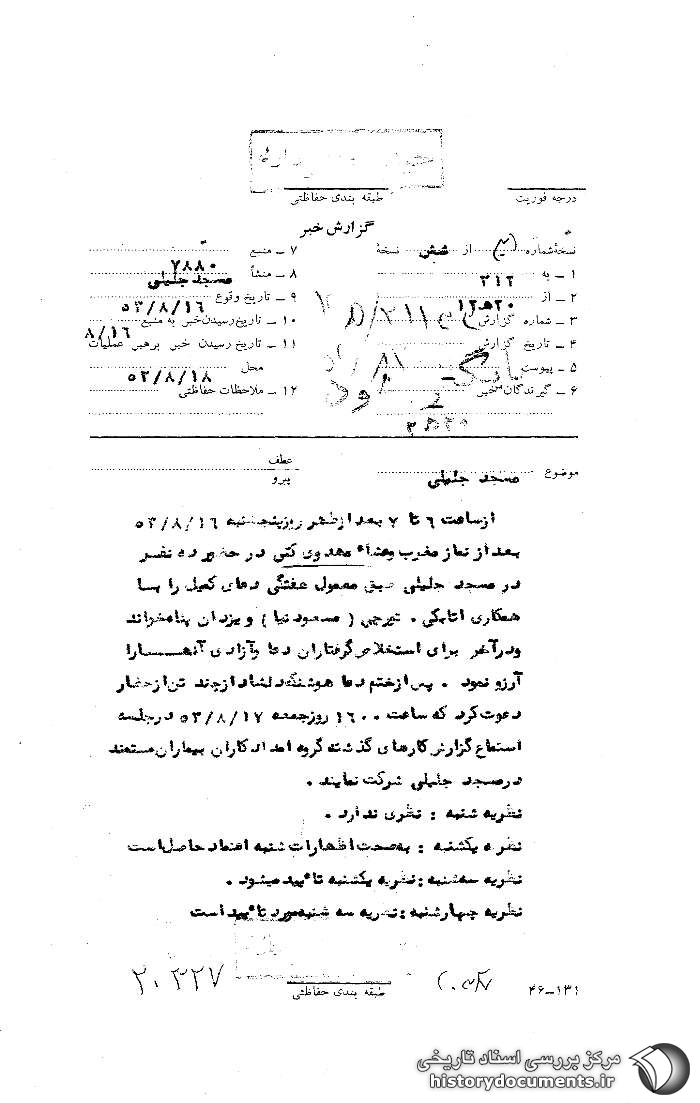 طبقه بندی حفاظتی
درجه فوریت
گزارش خبر
نسخهٔ شماره از شش نسخهٔ
۱ ـ به ۳۱۲
۲ ـ از ۲۰هـ۱۲
۳ ـ شماره گزارش
۴ ـ تاریخ گزارش
۵ ـ پیوست
۶ ـ گیرندگان خبر
۷ ـ منبع ۷۸۸۰
۸ ـ منشأ مسجد جلیلی
۹ ـ تاریخ وقوع ۵۳/۸/۱۶
۱۰ ـ تاریخ رسیدن خبر به منبع ۸/۱۶
۱۱ ـ تاریخ رسیدن خبر برهبر عملیات
محل ۵۳/۸/۱۸
۱۲ ـ ملاحظات حفاظتی
موضوع مسجد جلیلی
عطف
پیرو
از ساعت ۶ تا ۷ بعد از ظهر روز پنجشنبه ۵۳/۸/۱۶
بعد از نماز مغرب وعشاء مهدوی کنی در حضور ده نفر
در مسجد جلیلی طبق معمول هفتگی دعای کمیل را با
همکاری اتابکی . تیرچی ( مسعود نیا ) و یزدان پناه خواند
ودر آخر برای استخلاص گرفتاران دعا وآزادی آنهــا را
آرزو نمود . پس از ختم دعا هوشنگ دلشاد از چند تن از حضار
دعوت کرد که ساعت ۱۶۰۰ روز جمعه ۵۳/۸/۱۷ در جلسه
استماع گزارش کارهای گذشته گروه امداد کاران بیماران مستمند
در مسجد جلیلی شرکت نمایند .
نظریه شنبه : نظری ندارد .
نظریه یکشنبه : به صحت اظهارات شنبه اعتماد حاصل است
نظریه سه شنبه : نظریه یکشنبه تائید میشود .
نظریه چهارشنبه : نظریه سه شنبه مورد تائید است
۲۰۳۲۷
طبقه بندی حفاظتی
۴۶-۱۳۱
مرکز بررسی اسناد تاریخی
historydocuments.ir